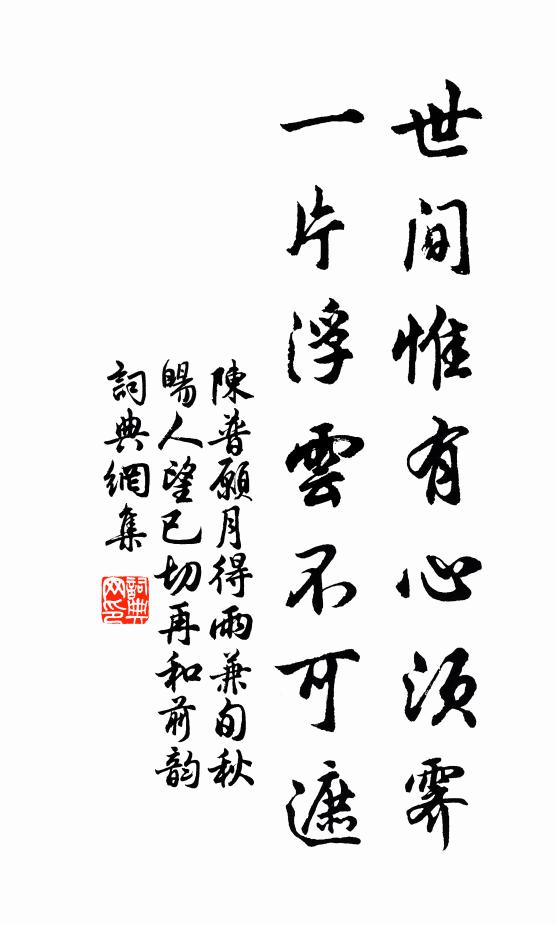 世間惟有心須霽
一片浮雲不可遮
陳普願月得雨兼旬秋
暘人望已切再和前韵
詞典網集
詞典網印